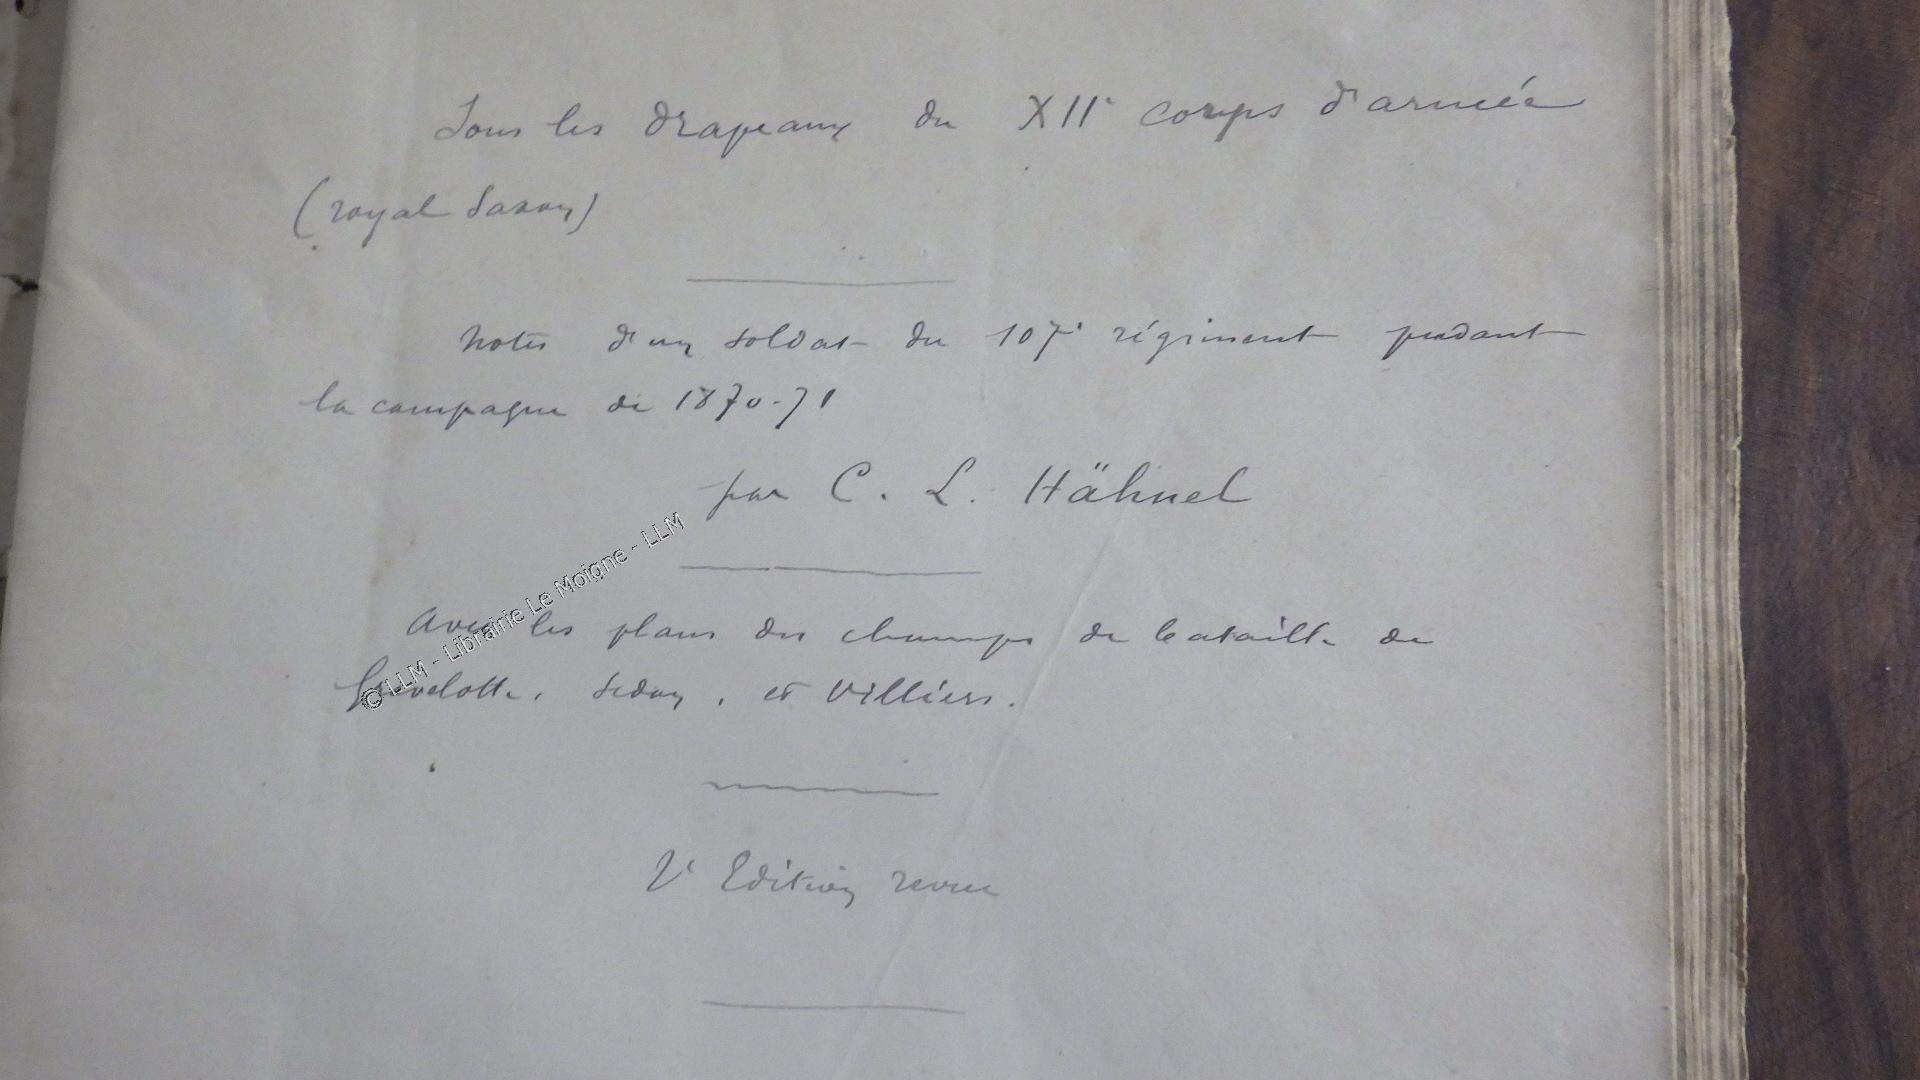 Sous les drapeaux du XIIe corps d'armée
(royal Saxon)
Notes d'un soldat du 107e régiment pendant
la campagne de 1870-71
par C. L. Hähnel
Avec les plans des champs de bataille de
Gravelotte, Sedan, et Villiers.
2e Edition revue
© LLM - Librairie Le Moigne - LLM